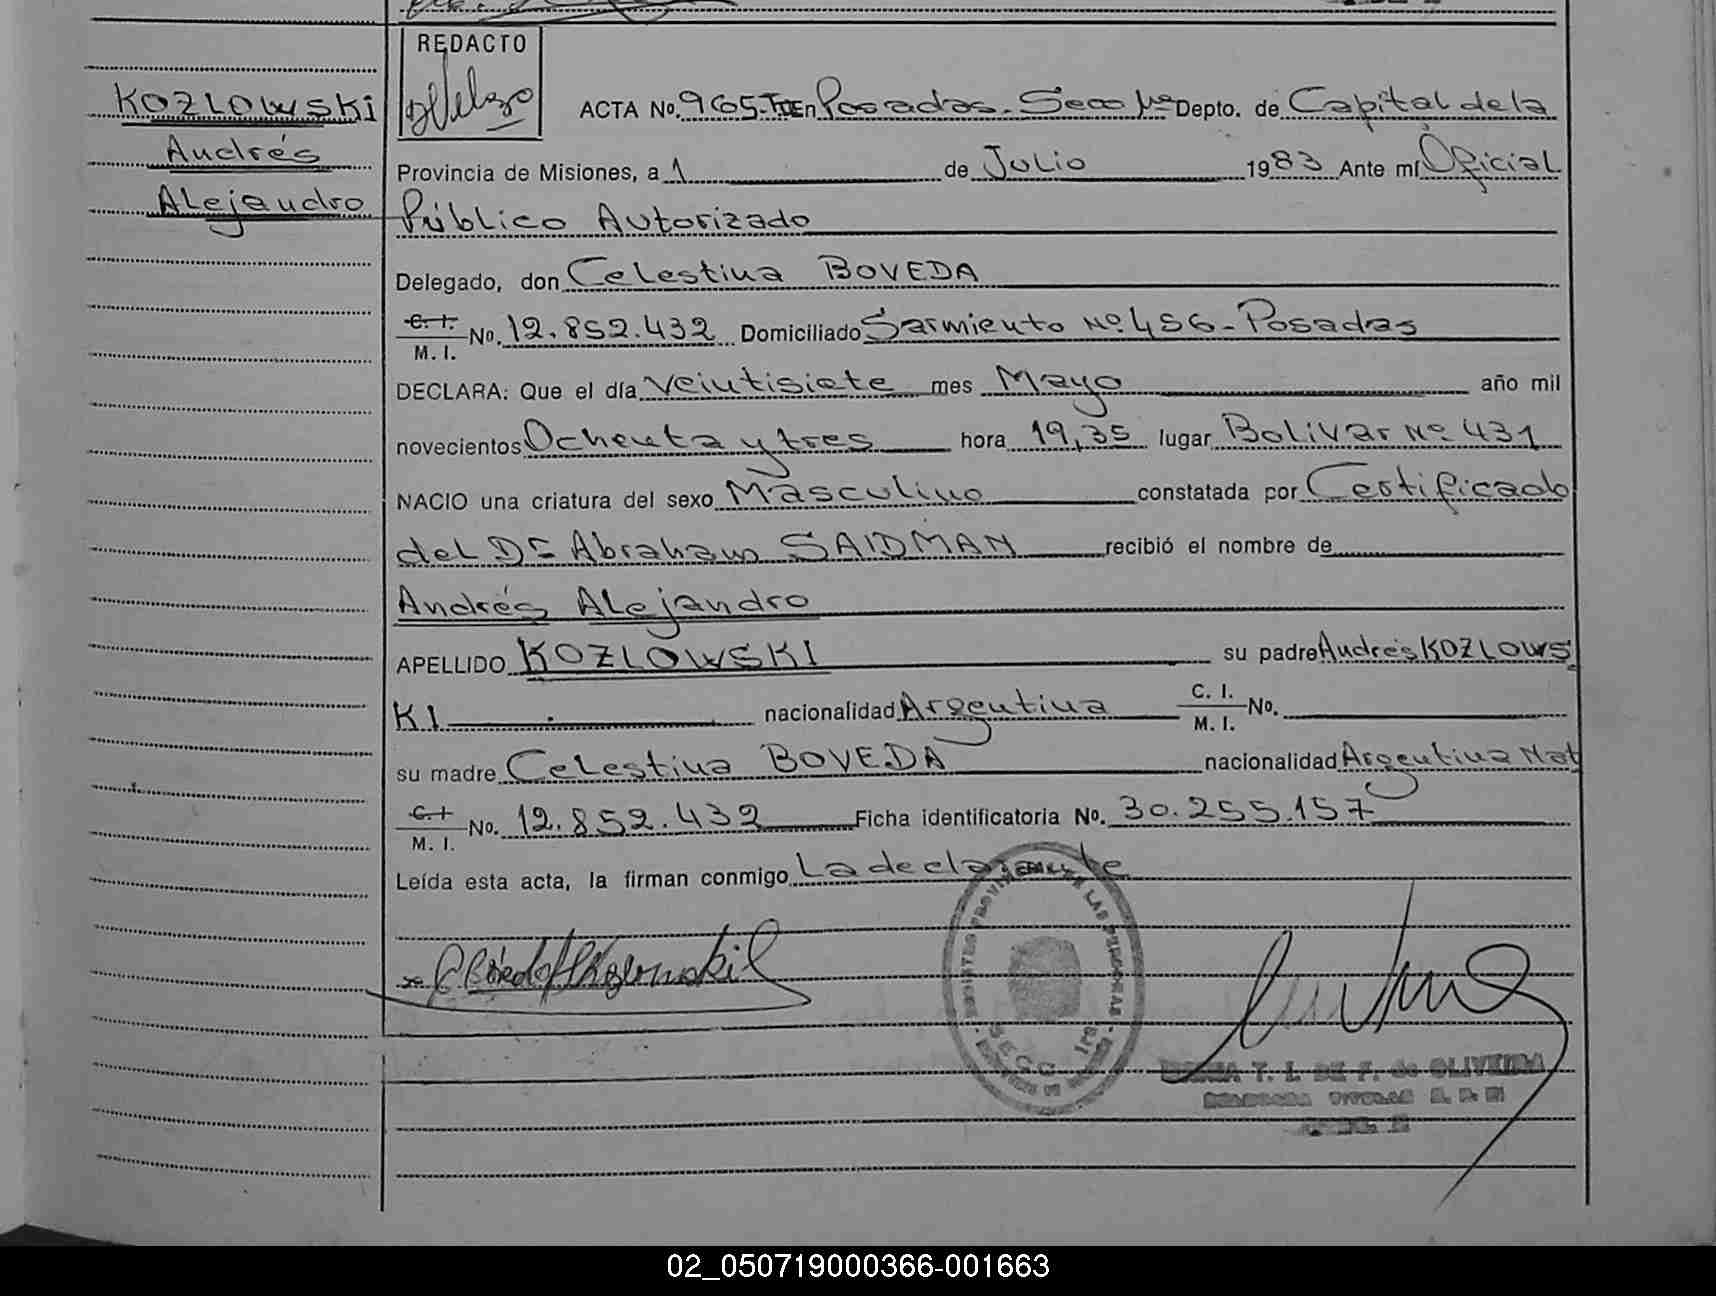 REDACTO
KOZLOWSKI
Andrés
Alejandro
ACTA No. 965-T.I En Posadas. Secc 1ra Depto. de Capital de la
Provincia de Misiones, a 1 de Julio 1983 Ante mí Oficial
Público Autorizado
Delegado, don Celestina BOVEDA
C. I. M. I. No. 12.852.432 Domiciliado Sarmiento Nº 456 - Posadas
DECLARA: Que el día veintisiete mes Mayo año mil
novecientos Ochenta y tres hora 19,35 lugar Bolivar Nº 431
NACIO una criatura del sexo Masculino constatada por Certificado
del Dr Abraham SAIDMAN recibió el nombre de
Andrés Alejandro
APELLIDO KOZLOWSKI su padre Andrés KOZLOWS
KI nacionalidad Argentina C. I. M. I. No.
su madre Celestina BOVEDA nacionalidad Argentina Nat
C. I. M. I. No. 12.852.432 Ficha identificatoria No. 30.255.157
Leída esta acta, la firman conmigo La declarante
DE LAS PERSONAS
SECC. 1ra
T. I. DE F. de OLIVEIRA
02_050719000366-001663